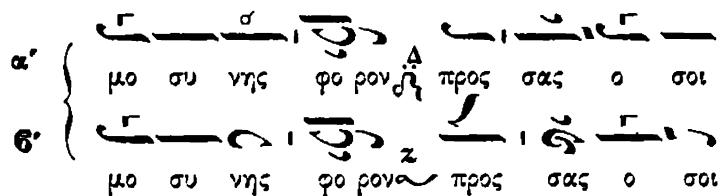 α' μο συ νης φο ρον Δ προς σας ο σοι
ϐ' μο συ νης φο ρον z προς σας ο σοι